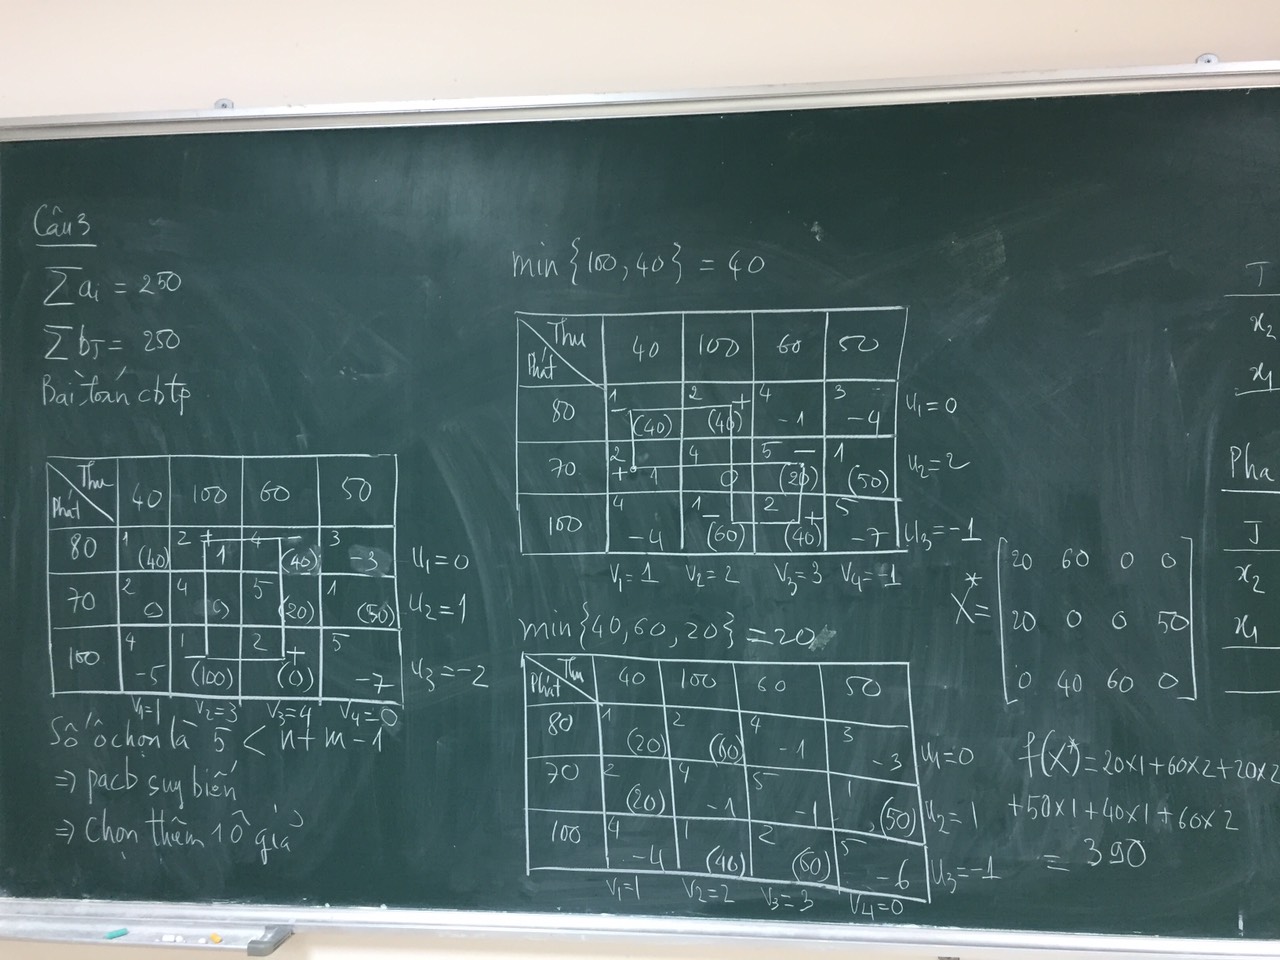 Câu 3
∑ai = 250
∑bJ = 250
Bài toán cbtp
Thu
Phát
40 100 60 50
80 1 (40) 2 + 1 4 - (40) 3 -3 u1=0
70 2 0 4 0 5 (20) 1 (50) u2=1
100 4 -5 1 - (100) 2 + (0) 5 -7 u3=-2
V1=1 V2=3 V3=4 V4=0
Số ô chọn là 5 < n+m-1
⇒ pacb suy biến
⇒ Chọn thêm 1 ô giả
min{100,40} = 40
Thu
Phát
40 100 60 50
80 1 - (40) 2 + (40) 4 -1 3 -4 u1=0
70 2 + 1 4 0 5 - (20) 1 (50) u2=2
100 4 -4 1 - (60) 2 + (40) 5 -7 u3=-1
V1=1 V2=2 V3=3 V4=-1
min{40,60,20} = 20
Thu
Phát
40 100 60 50
80 1 (20) 2 (60) 4 -1 3 -3 u1=0
70 2 (20) 4 -1 5 -1 1 (50) u2=1
100 4 -4 1 (40) 2 (60) 5 -6 u3=-1
V1=1 V2=2 V3=3 V4=0
X*=
20 60 0 0
20 0 0 50
0 40 60 0
f(X*)=20x1+60x2+20x2
+50x1+40x1+60x2
= 390
T
x2
x1
Pha
J
x2
x1